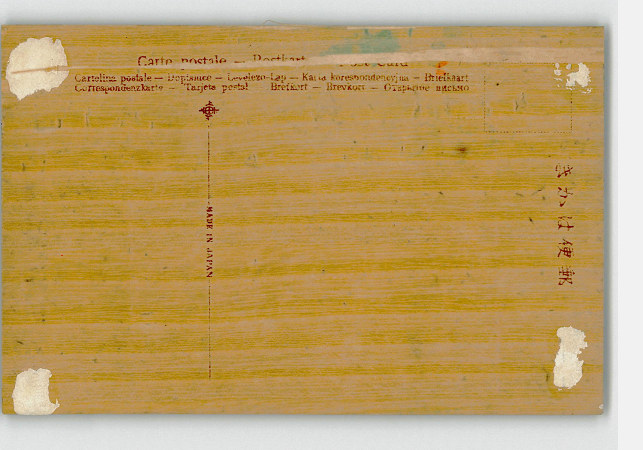 Carte postale — Postkart Post Card
Cartolina postale — Dopisnice — Levelezo-Lap — Karta korespondencyjna — Briefkaart
Correspondenzkarte — Tarjeta postal — Brefkort — Brevkort — Открытое письмо
MADE IN JAPAN
きがは便郵